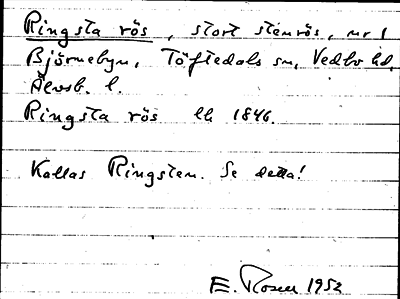 Ringsta rös, stort stenrös, nr 1
Björnebyn, Töftedals sn, Vedbo hd,
Älvsb. l.
Ringsta rös lk 1846.
Kallas Ringsten. Se detta!
E. Rosell 1952